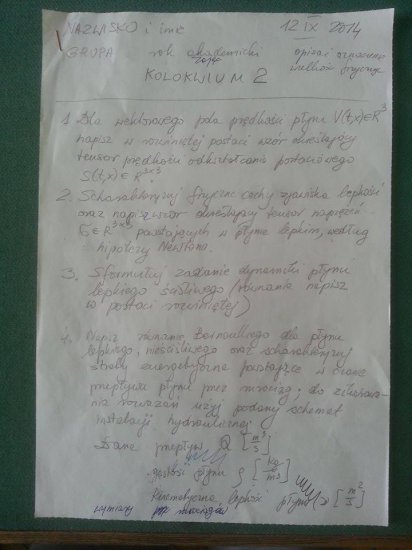 NAZWISKO i imię 12 IX 2014
GRUPA rok akademicki opisać oznaczenia
wielkości fizyczne
KOLOKWIUM 2
1. Dla wektorowego pola prędkości płynu V(t,x)∈R³
napisz w rozwiniętej postaci wzór określający
tensor prędkości odkształcania postaciowego
S(t,x) ∈ R³ˣ³.
2. Scharakteryzuj fizyczne cechy zjawiska lepkości
oraz napisz wzór określający tensor napięcia
∈ R³ˣ³ powstających w płynie lepkim, według
hipotezy Newtona.
3. Sformułuj zadanie dynamiki płynu
lepkiego ściśliwego (równania napisz
w postaci rozwiniętej)
4. Napisz równanie Bernoulliego dla płynu
lepkiego, nieściśliwego oraz scharakteryzuj
straty energetyczne powstające w czasie
przepływu płynu przez rurociąg; do zilustrowa-
nia rozważań użyj podany schemat
instalacji hydraulicznej
Dane przepływ Q [m³/s]
gęstość płynu ρ [kg/m³]
kinematyczna lepkość płynu ν [m²/s]
wymiary rurociągów